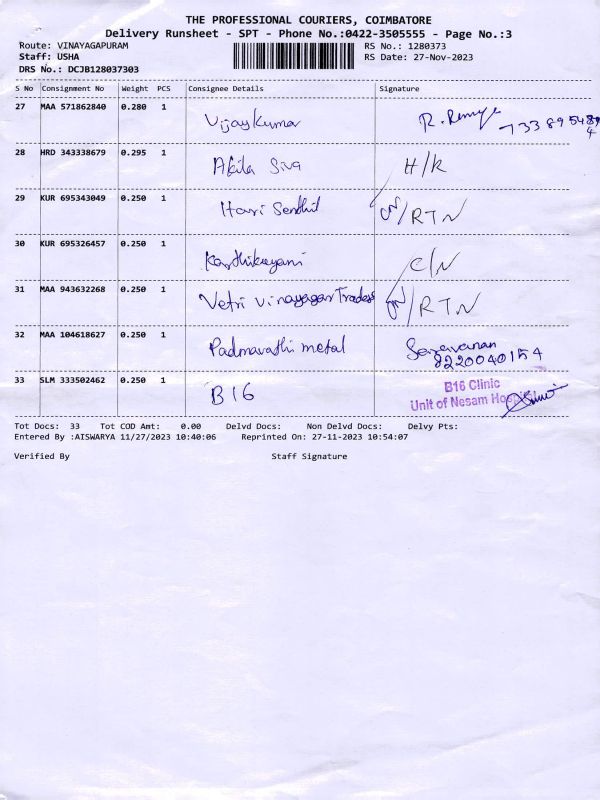 THE PROFESSIONAL COURIERS, COIMBATORE
Delivery Runsheet - SPT - Phone No.:0422-3505555 - Page No.:3
Route: VINAYAGAPURAM RS No.: 1280373
Staff: USHA RS Date: 27-Nov-2023
DRS No.: DCJB128037303
S No Consignment No Weight PCS Consignee Details Signature
27 MAA 571862840 0.280 1 Vijaykumar R. Remya
28 HRD 343338679 0.295 1 Akila Siva H/R
29 KUR 695343049 0.250 1 Hari Senthil /RTN
30 KUR 695326457 0.250 1 Karthikayani C/N
31 MAA 943632268 0.250 1 Vetri Vinayagar Traders /RTN
32 MAA 104618627 0.250 1 Padmavathi metal Saravanan
8220040154
33 SLM 333502462 0.250 1 B16 B16 Clinic
Unit of Nesam Hospital
Tot Docs: 33 Tot COD Amt: 0.00 Delvd Docs: Non Delvd Docs: Delvy Pts:
Entered By :AISWARYA 11/27/2023 10:40:06 Reprinted On: 27-11-2023 10:54:07
Verified By Staff Signature